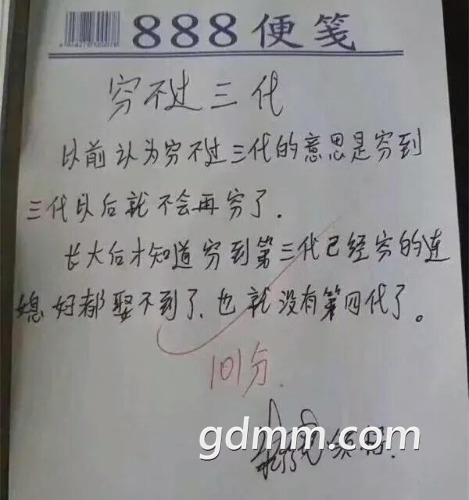 888便笺
穷不过三代
以前认为穷不过三代的意思是穷到
三代以后就不会再穷了.
长大后才知道穷到第三代已经穷的连
媳妇都娶不到了,也就没有第四代了。
101分.
gdmm.com